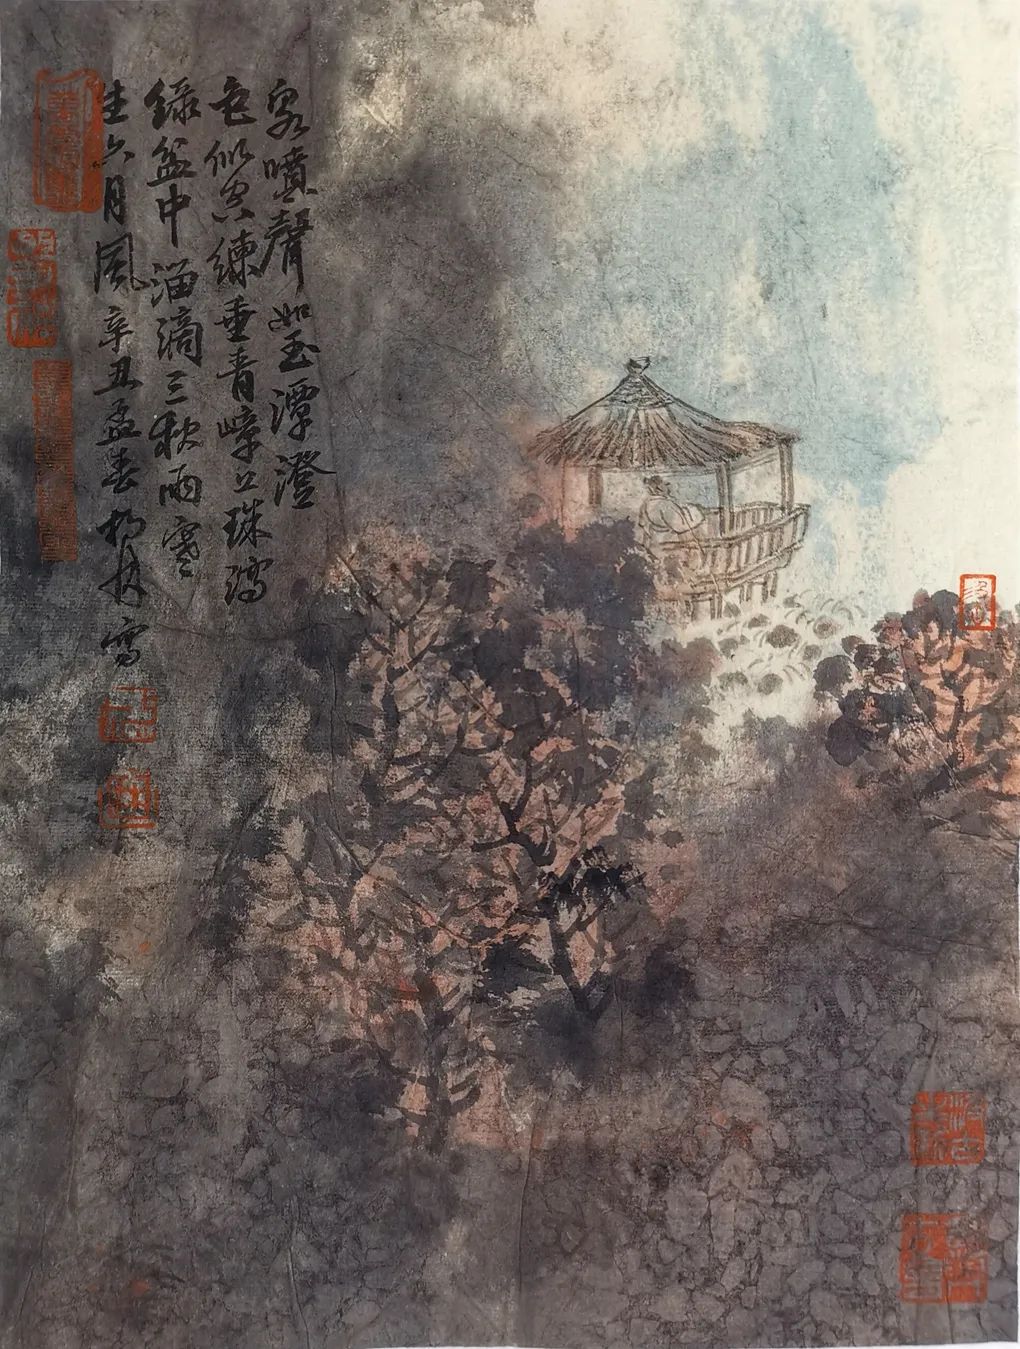 泉噴聲如玉潭澄
色似空練垂青嶂上珠瀉
綠盆中溜滴三秋雨寒
生六月風辛丑孟春寫